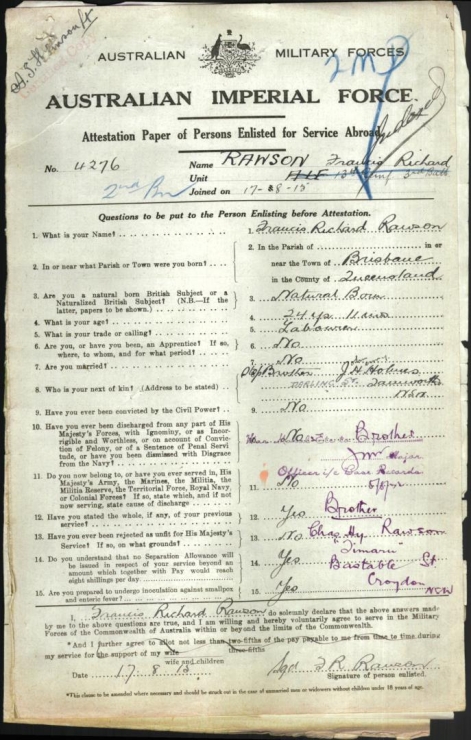 AUSTRALIAN MILITARY FORCES.
AUSTRALIAN IMPERIAL FORCE.
Attestation Paper of Persons Enlisted for Service Abroad
Indexed
No. 4276 Name RAWSON Francis Richard
Unit
2nd Bn Joined on 17-8-15
Questions to be put to the Person Enlisting before Attestation.
1. What is your Name? 1. Francis Richard Rawson
2. In or near what Parish or Town were you born? 2. In the Parish of in or
near the Town of Brisbane
in the County of Queensland
3. Are you a natural born British Subject or a
Naturalized British Subject? (N.B.—If the
latter, papers to be shown.) 3. Natural Born
4. What is your age? 4. 24 yrs 11 mos
5. What is your trade or calling? 5. Labourer
6. Are you, or have you been, an Apprentice? If so,
where, to whom, and for what period? 6. No
7. Are you married? 7. No
8. Who is your next of kin? (Address to be stated) Brother J H Holmes
Tamworth
NSW
9. Have you ever been convicted by the Civil Power? 9. No
10. Have you ever been discharged from any part of His
Majesty's Forces, with Ignominy, or as Incor-
rigible and Worthless, or on account of Convic-
tion of Felony, or of a Sentence of Penal Servi-
tude, or have you been dismissed with Disgrace
from the Navy? No
Brother
Major
Officer i/c Base Records
11. Do you now belong to, or have you ever served in, His
Majesty's Army, the Marines, the Militia, the
Militia Reserve, the Territorial Force, Royal Navy,
or Colonial Forces? If so, state which, and if not
now serving, state cause of discharge 11. No
12. Have you stated the whole, if any, of your previous
service? 12. Yes
Brother
13. Have you ever been rejected as unfit for His Majesty's
Service? If so, on what grounds? 13. No
Chas. Hy. Rawson
Timaru
14. Do you understand that no Separation Allowance will
be issued in respect of your service beyond an
amount which together with Pay would reach
eight shillings per day 14. Yes
Bastable St.
Croydon
NSW
15. Are you prepared to undergo inoculation against smallpox
and enteric fever? 15. Yes
I, Francis Richard Rawson do solemnly declare that the above answers made
by me to the above questions are true, and I am willing and hereby voluntarily agree to serve in the Military
Forces of the Commonwealth of Australia within or beyond the limits of the Commonwealth.
*And I further agree to allot not less than two-fifths of the pay payable to me from time to time during
three-fifths
my service for the support of my wife
wife and children
Date 17.8.15 Sgd F R Rawson
Signature of person enlisted.
*This clause to be amended where necessary and should be struck out in the case of unmarried men or widowers without children under 18 years of age.